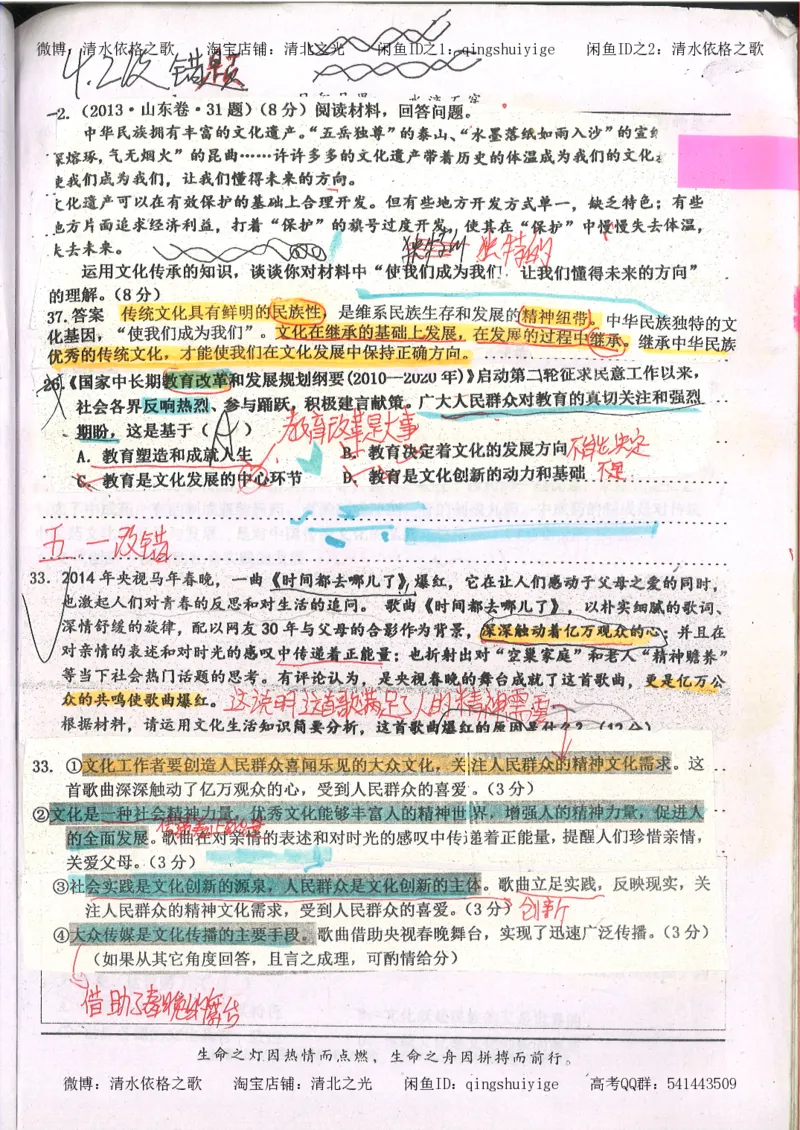 微博：清水依格之歌 淘宝店铺：清北之光 闲鱼ID之1：qingshuiyige 闲鱼ID之2：清水依格之歌
4.2改错题
2.（2013·山东卷·31题）（8分）阅读材料，回答问题。
中华民族拥有丰富的文化遗产。“五岳独尊”的泰山、“水墨落纸如雨入沙”的宣
深熔琢，气无烟火”的昆曲……许许多多的文化遗产带着历史的体温成为我们的文化
使我们成为我们，让我们懂得未来的方向。
文化遗产可以在有效保护的基础上合理开发。但有些地方开发方式单一，缺乏特色；有些
地方片面追求经济利益，打着“保护”的旗号过度开发，使其在“保护”中慢慢失去体温，
失去未来。
独特的
运用文化传承的知识，谈谈你对材料中“使我们成为我们，让我们懂得未来的方向”
的理解。（8分）
37.答案 传统文化具有鲜明的民族性，是维系民族生存和发展的精神纽带。中华民族独特的文
化基因，“使我们成为我们”。文化在继承的基础上发展，在发展的过程中继承。继承中华民族
优秀的传统文化，才能使我们在文化发展中保持正确方向。
26.《国家中长期教育改革和发展规划纲要(2010—2020年)》启动第二轮征求民意工作以来，
社会各界反响热烈、参与踊跃，积极建言献策。广大人民群众对教育的真切关注和强烈
期盼，这是基于（ A ）
教育改革是大事
A．教育塑造和成就人生 B．教育决定着文化的发展方向 不能决定
C．教育是文化发展的中心环节 D．教育是文化创新的动力和基础 不是
五 改错
33. 2014年央视马年春晚，一曲《时间都去哪儿了》爆红，它在让人们感动于父母之爱的同时，
也激起人们对青春的反思和对生活的追问。 歌曲《时间都去哪儿了》，以朴实细腻的歌词、
深情舒缓的旋律，配以网友30年与父母的合影作为背景，深深触动着亿万观众的心；并且在
对亲情的表述和对时光的感叹中传递着正能量；也折射出对“空巢家庭”和老人“精神赡养”
等当下社会热门话题的思考。有评论认为，是央视春晚的舞台成就了这首歌曲，更是亿万公
众的共鸣使歌曲爆红。
这说明这首歌满足了人的精神需要
根据材料，请运用文化生活知识简要分析，这首歌曲爆红的原因是什么？（12分）
33. ①文化工作者要创造人民群众喜闻乐见的大众文化，关注人民群众的精神文化需求。这
首歌曲深深触动了亿万观众的心，受到人民群众的喜爱。（3分）
②文化是一种社会精神力量，优秀文化能够丰富人的精神世界，增强人的精神力量，促进人
的全面发展。歌曲在对亲情的表述和对时光的感叹中传递着正能量，提醒人们珍惜亲情，
关爱父母。（3分）
③社会实践是文化创新的源泉，人民群众是文化创新的主体。歌曲立足实践，反映现实，关
注人民群众的精神文化需求，受到人民群众的喜爱。（3分）创新
④大众传媒是文化传播的主要手段。歌曲借助央视春晚舞台，实现了迅速广泛传播。（3分）
（如果从其它角度回答，且言之成理，可酌情给分）
借助了春晚的舞台
生命之灯因热情而点燃，生命之舟因拼搏而前行。
微博：清水依格之歌 淘宝店铺：清北之光 闲鱼ID：qingshuiyige 高考QQ群：541443509